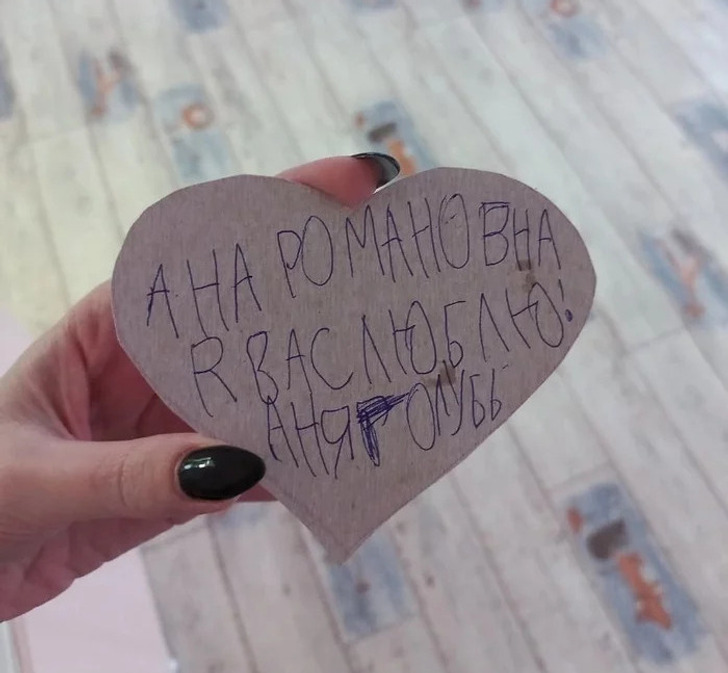 АНА РОМАНОВНА
R ВАС ЛЮБЛЮ!
АНЯ ГОЛУБЬ